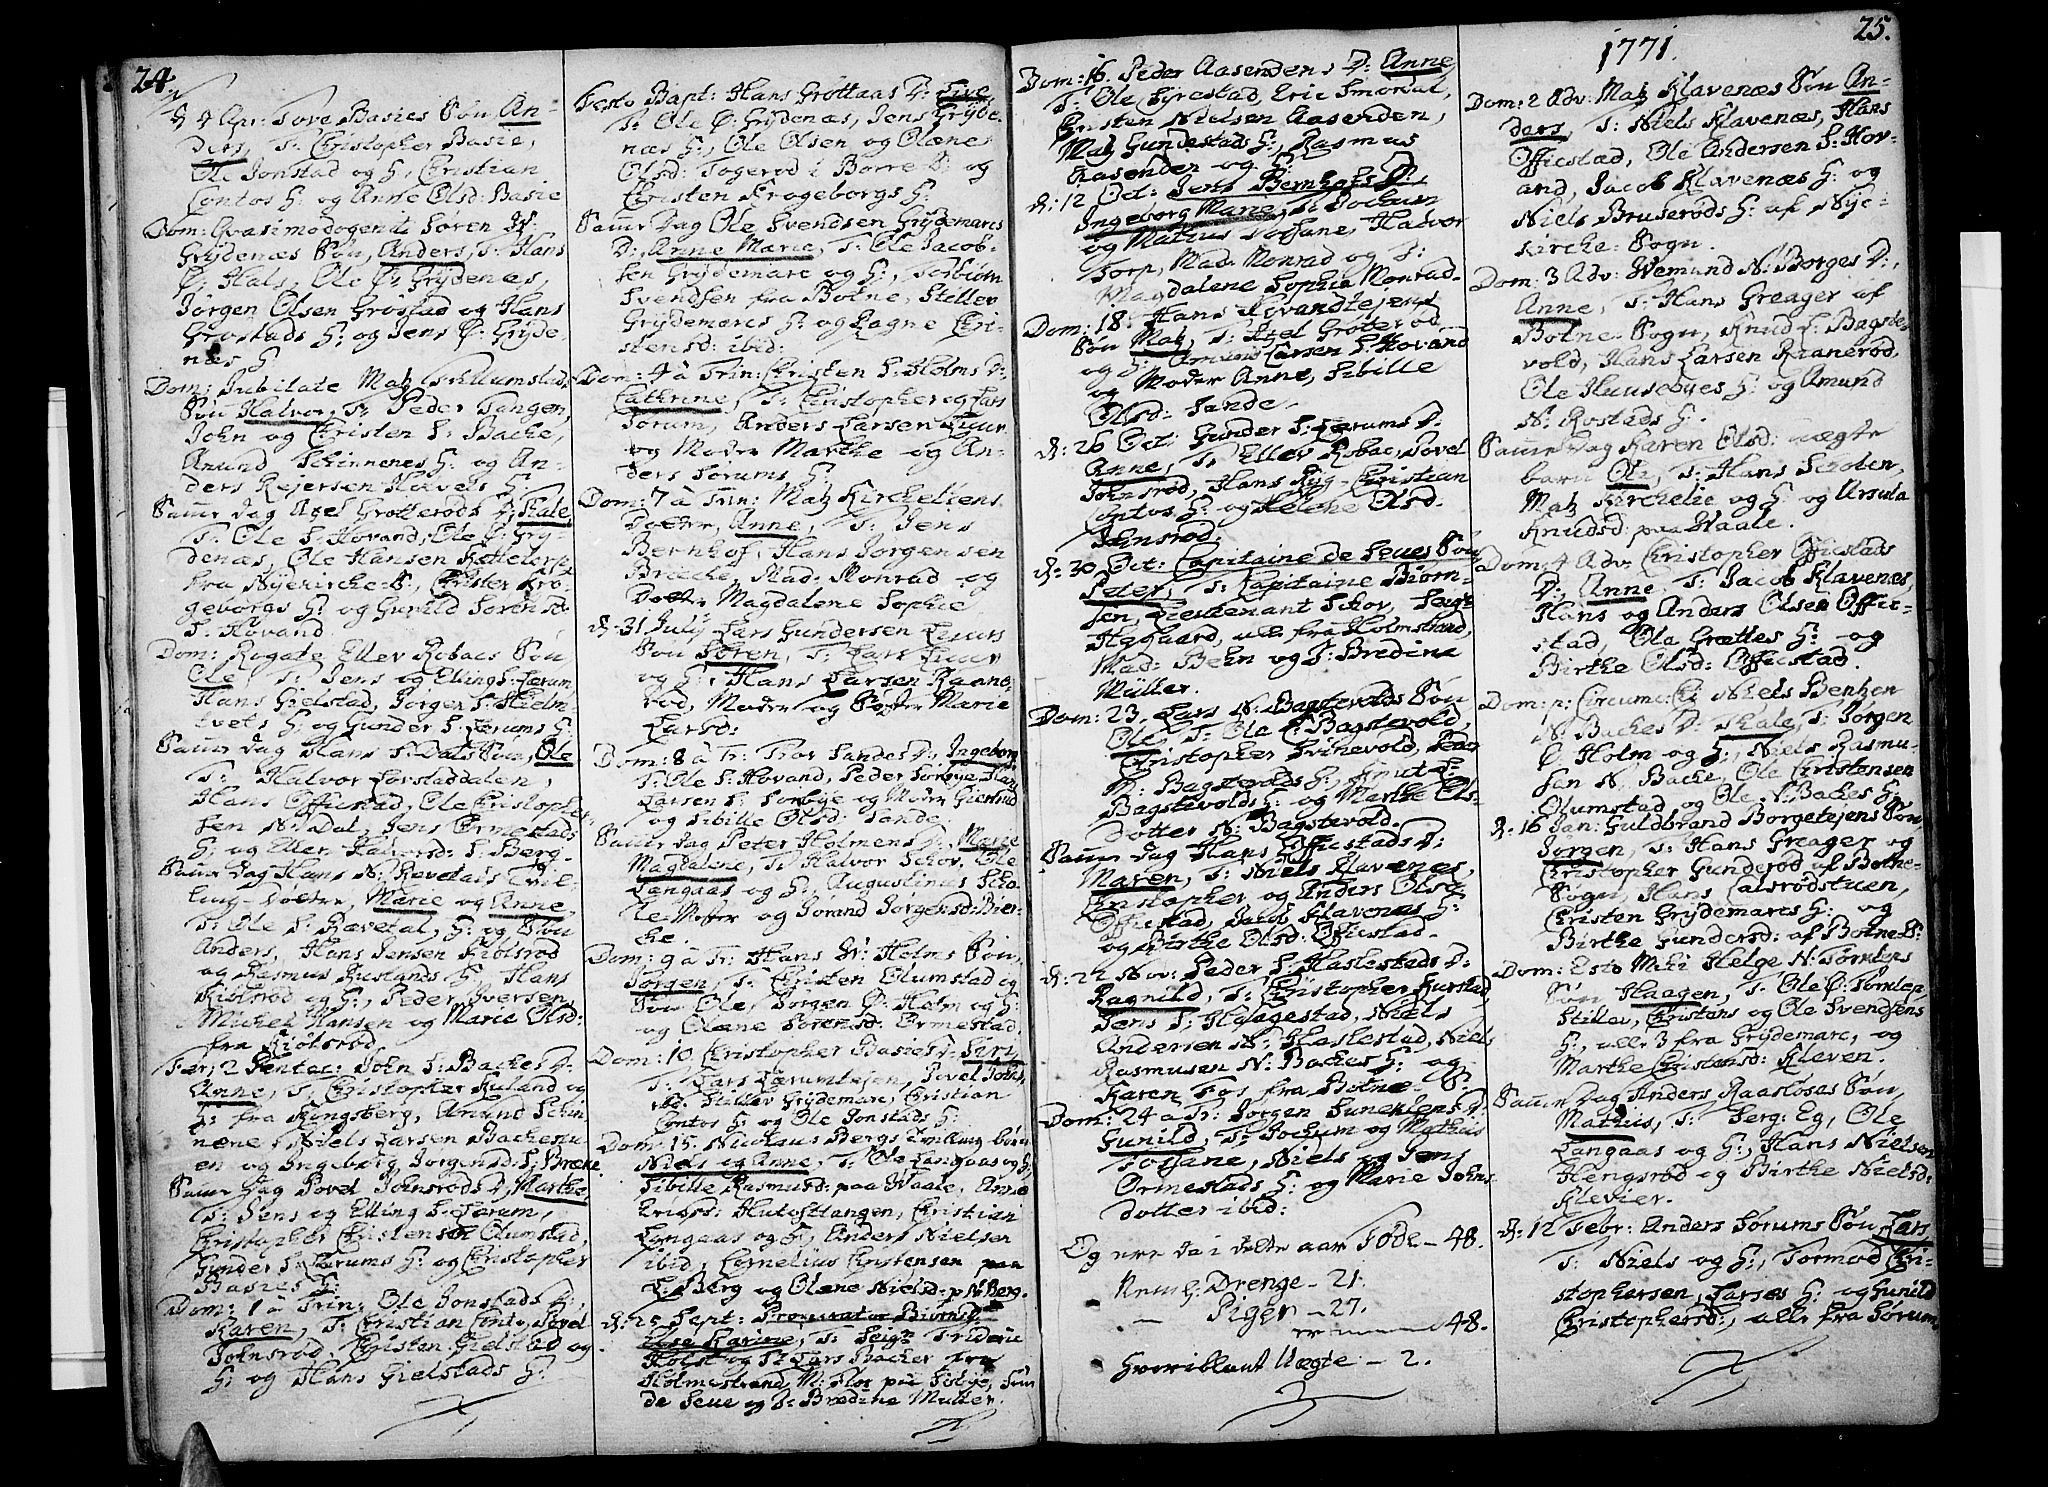 24.
d. 4 Apr: Tore Basies Søn An-
ders, T: Christopher Basie,
Ole Jonstad og H, Christian
Contos H: og Anne Olsd: Basie
Dom: Qvasimodogenit: Søren N:
Grydenæs Søn, Anders, T: Hans
Ø: Hals, Ole Ø: Grydenæs,
Jørgen Olsen Grøstad og Hans
Grøstads H: og Jens Ø: Gryde-
næs H
Dom: Jubilate Matz Ullumstad
Søn Halvor, T: Peder Tangen,
John og Christen S: Bache,
Amund Schinnenes H: og An-
ders Rejersen Holvets H:
Samme dag Axel Grotterøds D: Kale,
T: Ole S: Hovand, Ole Ø: Gry-
denæs, Ole Hansen
fra Nykirche S:, Christen Kro-
geborgs H: og Gunild Sørensd:
S: Hovand.
Dom: Rogate Ellev Robacs Søn
Ole, T: Jens og Elling S: Lærum,
Hans Gielstad, Jørgen S: Hielm-
tvets H: og Gunder S: Lærums H:
Samme dag Hans S: Dals Søn, Ole
T: Halvor Lørstaddalen,
Hans Officstad, Ole Christopher-
sen N: Dal, Jens Ormestads
H: og Ellen Halvorsd: S: Berg-
Samme dag Hans N: Revetals Tvil-
ling-Døttre, Marie og Anne
T: Ole S: Rævetal, H: og Søn
Anders, Hans Jensen Kiølsrød
og Rasmus H: Hans
Kiølsrød og H:, Peder Iversen,
Michel Hansen og Marie Olsd:
fra Kiølsrød
Fer: 2 Pentec: John S: Baches D:
Anne, T: Christopher Ruland og
H: fra Kongsberg, Amund Schin-
nene, Niels Larsen Bachestu-
en og Ingeborg Jørgensd: S: Bræke
Samme dag Povel Johnsrøds D: Marthe,
T: Jens og Elling S: Lærum,
Christopher Christensen Olumstad,
Gunder S: Lærums H: og Christopher
Basies H:
Dom: 1 à Trin: Ole Jonstads D:,
Karen, T: Christian Conto, Povel
Johnsrød, Christen Gielstad og
H: og Hans Gielstads H:
Festo Bapt: Hans Grottaas D: Live
T: Ole Ø: Grydenæs, Jens Gryde-
næs H:, Ole Olsen og Olæne
Olsd: Togerød i Borre S: og
Christen Krogeborgs H:
Samme Dag Ole Svendsen Grydemares
D: Anne Marie, T: Ole Jacob-
sen Grydemare og H:, Torbiørn
Svendsen fra Botne, Stillev
Grydemares H: og Ragne Chri-
stensd: ibid:
Dom: 4 à Trin: Christen S: Holms D:
Cathrine, T: Christopher og Lars
Sørum, Anders Larsen
og Moder Marthe og An-
ders Sørums H:
Dom: 7 à Trin: Matz Kirchelies
Dotter, Anne, T: Jens
Bernhof, Hans Jørgensen
Brieche, Mad: Monrad og
Dotter Magdalene Sophie
d: 31 July Lars Gundersen
Søn Søren, T: Lars
og H:, Hans Larsen Raane-
rød, Moder og Søster Marie
Larsd:
Dom: 8 à Tr: Tror Sandes D:, Ingeborg,
T: Ole S: Hovand, Peder Sørbye, Hans
Larsen S: Sørbye og Moder Giertrud
og Sibille Olsd: Sande.
Samme dag Peter Holmens D:, Marie
Magdalene, T: Halvor Schov, Ole
Langaas og H:, Augustinus Scho-
og Jørand Jørgensd: Bier-
che.
Dom: 9 à Tr: Hans N: Holms Søn,
Jørgen, T: Christen Olumstad og
Søn Ole, Jørgen Ø: Holm og H:
og Olæne Sørensd: Ormestad,
Dom: 10 Christopher Basies D: Siri,
T: Lars Lærumtejen, Povel Johns-
rød, Stillev Grydemare, Christian
Contos H: og Ole Jonstads H:
Dom: 15. Nicolaus Bergs Tvilling-børn
Niels og Anne, T: Ole Langaas og H:,
Sibille Rasmusd: paa Waale, Anne
Erichsd: Hutostangen, Christian
Langaas og H:, Anders Nielsen
ibid, Cornelius Christensen paa
L: Berg og Olæne Nielsd: p: N: Berg.
d: 25 Sept: Procurator Biørns D:
Else Karine, T: Seigr Frideric
Holst og Lars Bacher fra
Holmestrand, M: Flor paa Foesbye,
de Seue og T: Bredine Müller.
Dom: 16. Peder Aasendens D: Anne,
T: Ole Fyrestad, Eric Smørdal,
Christen Nielsen Aasenden,
Matz Gundestads H:, Rasmus
Aasenden og H:
d: 12 Oct: Jens Bernhofs D:,
Ingeborg Marie, T: Jochum
og Mathias Fossane, Halvor
Torp, Mad: Monrad og T:
Magdalene Sophia Monrad.
Dom: 18. Hans Hovandtejens
Søn Matz, T: Axel Grøterød
og H: Amund Larsen S: Hovand
og Moder Anne, Sibille
Olsd: Sande.
d: 26 Oct: Gunder S: Lærums D:
Anne, T: Ellev Robac, Povel
Johnsrød, Hans Ryg-Christian
Contos H: og Helene Olsd:
Johnsrød.
d: 30 Oct: Capitaine de Seues Søn
Peter, T: Capitaine Biørn-
sen, Lieutenant Schov, Seigr
Hegaard, alle fra Holmstrand,
Mad: Behn og T: Bredine
Müller.
Dom: 23. Lars N: Bagstevolds Søn
Ole, T: Ole S: Bagstevold,
Christopher Svinevold, Peder
N: Bagstevolds H:, Knut S:
Bagstevolds H: og Marthe Ols-
dotter N: Bagstevold.
Samme dag Hans Officstads D:
Maren, T: Niels Klavenæs,
Christopher og Anders Olsen
Officstad, Jacob Klavenæs H:
og Birthe Olsd: Officstad.
d: 22 Nov: Peder S: Haslestads D:
Ragnild, T: Christopher Hurstad,
Jens S: Haslestad, Niels
Andersen N: Haslestad, Niels
Rasmusen N: Baches H: og
Karen Fos fra Botne S:
Dom: 24 à Tr: Jørgen Sunesløns D:
Gunild, T: Jochum og Mathias
Fossane, Niels og Jens
Ormestads H: og Marie Johns-
dotter ibid:
Og ere da i dette aar Føde - 48.
Neml: Drenge - 21.
— Piger - 27.
er 48.
Hvoriblant Uægte - 2.
25.
1771.
Dom: 2 Adv: Matz Klavenæs Søn An-
ders, T: Niels Klavenæs, Hans
Officstad, Ole Andersen S: Hov-
and, Jacob Klavenæs H: og
Niels Bruserøds H: af Nye-
kirche-Sogn.
Dom: 3 Adv: Wemund N: Borges D:,
Anne, T: Hans Greager af
Botne-Sogn, Knud S: Bagste-
vold, Hans Larsen Raanerød,
Ole Huusebyes H: og Amund
N: Rostads H:
Samme dag Karen Olsd: uægte
barn Ole, T: Hans Scholen,
Matz Kirchelie og H: og Ursula
Knudsd: paa Waale.
Dom: 4 Adv: Christopher Officstads
D:, Anne, T: Jacob Klavenæs,
Hans og Anders Olsen Offic-
stad, Ola Grøttes H: og
Birthe Olsd: Officstad.
Dom: p: Circumc: Niels Bentzen
N: Baches D: Kale, T: Jørgen
Ø: Holm og H:, Niels Rasmu-
sen N: Bache, Ole Christensen
Olumstad og Ole N: Baches H:
d: 16 Jan: Guldbrand Borgetejens Søn,
Jørgen, T: Hans Greager og
Christopher Gunderød af Botne-
Sogn, Hans Calsrødstuen,
Christen Grydemares H: og
Birthe Gundersd: af Botne S:
Dom: Esto Mihi Helge N: Tømleps
Søn Haagen, T: Ole Ø: Tømlep,
Stillev, Christens og Ole Svendsens
H:, alle 3 fra Grydemare, og
Marthe Christensd: Kleven.
Samme dag Anders Raasløsas Søn,
Mathias, T: Serg: Eg, Ole
Langaas og H:, Hans Nielsen
Hengsrød og Birthe Nielsd:
Klevier.
d: 12 Febr: Anders Sørums Søn Lars
T: Niels og H:, Tormod Chri-
stophersen, Larses H: og Gunild
Christophersd:, alle fra Sørum.